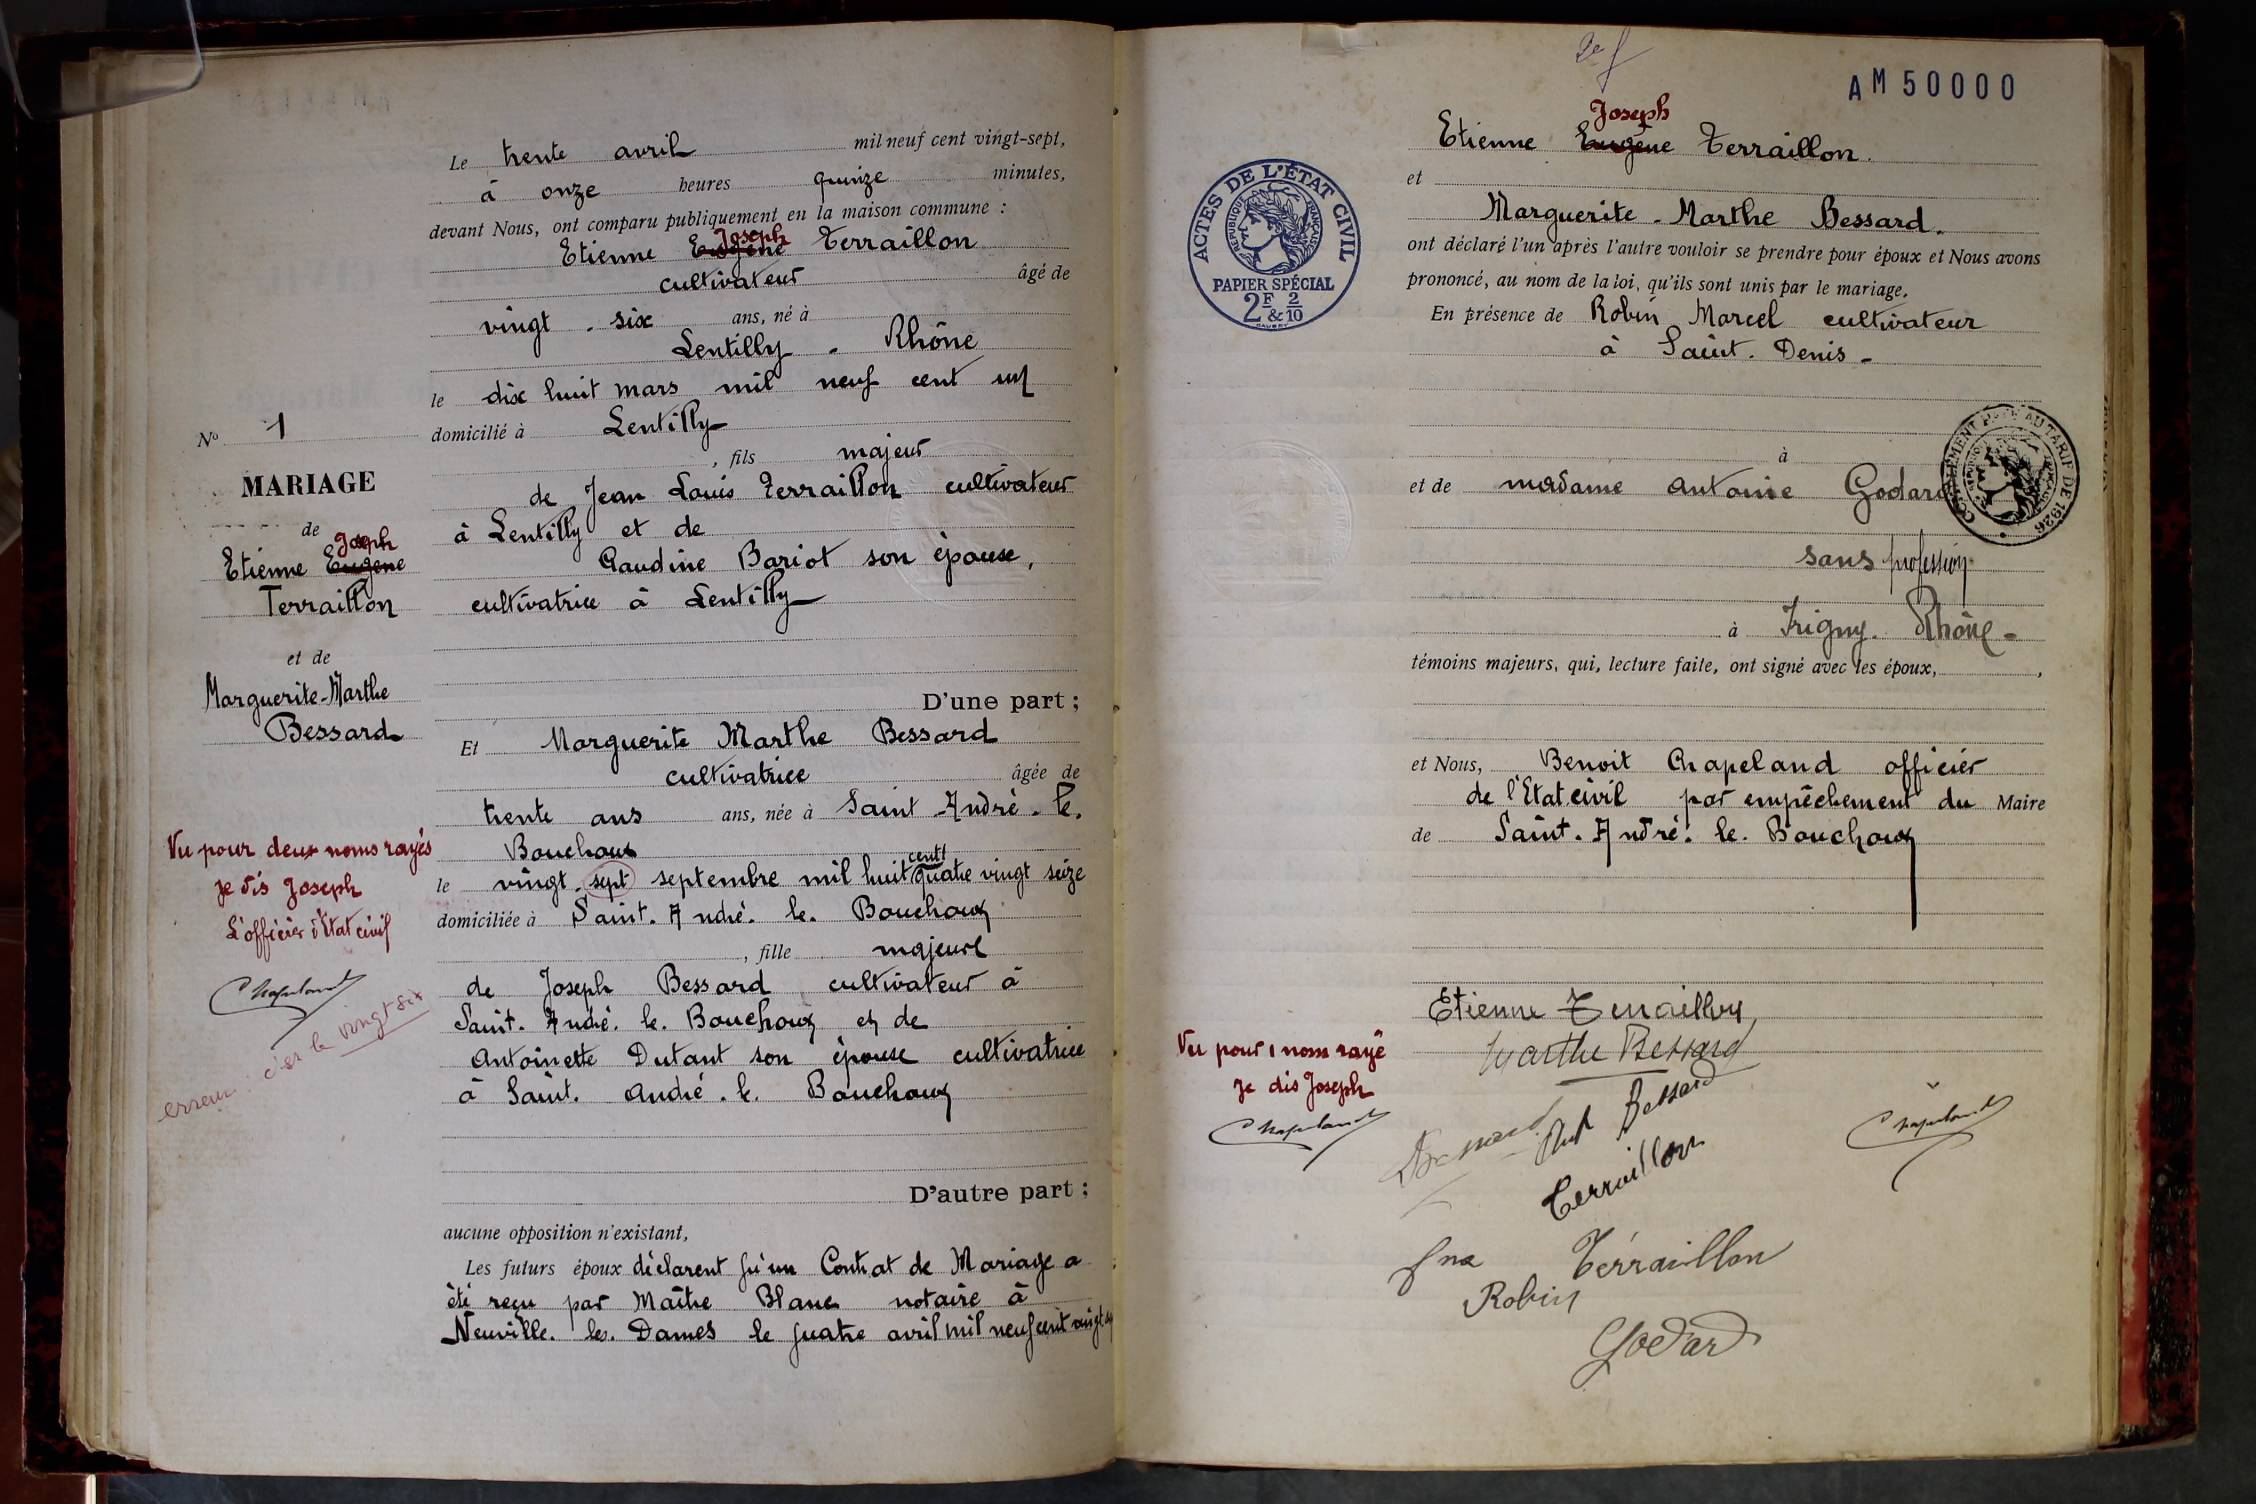 Le trente avril mil neuf cent vingt-sept,
à onze heures quinze minutes,
devant Nous, ont comparu publiquement en la maison commune :
Joseph
Etienne Eugène Terraillon
cultivateur âgé de
vingt-six ans, né à
Lentilly - Rhône
le dix huit mars mil neuf cent un
domicilié à Lentilly
, fils majeur
de Jean Louis Terraillon cultivateur
à Lentilly et de
Claudine Bariot son épouse,
cultivatrice à Lentilly
D'une part ;
Et Marguerite Marthe Bessard
cultivatrice âgée de
trente ans ans, née à Saint-André-le-
Bouchoux
cent
le vingt-sept septembre mil huit quatre vingt seize
domiciliée à Saint-André-le-Bouchoux
, fille majeure
de Joseph Bessard cultivateur à
Saint-André-le-Bouchoux et de
Antoinette Dutant son épouse cultivatrice
à Saint-André-le-Bouchoux
D'autre part ;
aucune opposition n'existant,
Les futurs époux déclarent qu'un Contrat de Mariage a
été reçu par Maître Blanc notaire à
Neuville-les-Dames le quatre avril mil neuf cent vingt
No 1
MARIAGE
de
Joseph
Etienne Eugène
Terraillon
et de
Marguerite-Marthe
Bessard
Vu pour deux noms rayés
je dis Joseph
L'officier d'Etat civil
Chapeland
erreur : c'est le vingt six
AM50000
ACTES DE L'ÉTAT CIVIL
RÉPUBLIQUE FRANÇAISE
PAPIER SPÉCIAL
2F & 2/10
Joseph
Etienne Eugène Terraillon.
et
Marguerite-Marthe Bessard.
ont déclaré l'un après l'autre vouloir se prendre pour époux et Nous avons
prononcé, au nom de la loi, qu'ils sont unis par le mariage.
En présence de Robin Marcel cultivateur
à Saint-Denis-
à
et de madame Antonie Godard
COMPLÉMENT AU TARIF DE 1926
sans profession
à Irigny. Rhône -
témoins majeurs, qui, lecture faite, ont signé avec les époux, ,
et Nous, Benoit Chapeland officier
de l'Etat civil par empêchement du Maire
de Saint-André-le-Bouchoux
Etienne Terraillon
Marthe Bessard
Bessard
Terraillon
Chapeland
Terraillon
Robin
Godard
Vu pour 1 nom rayé
je dis Joseph
Chapeland